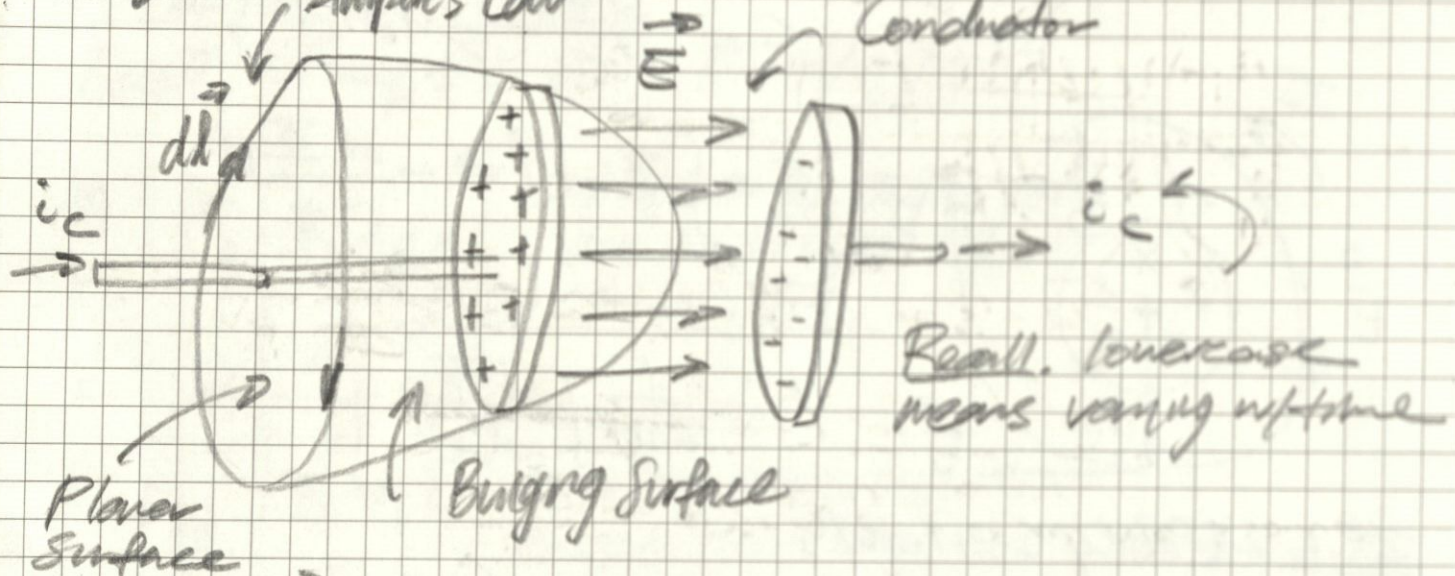 Ampere's Law
Conductor
E
dl
+ + + + + + + + + +
- - - - - - - -
i c
i c
Recall. lowercase
means varying w/time
Planar
Surface
Bulging Surface